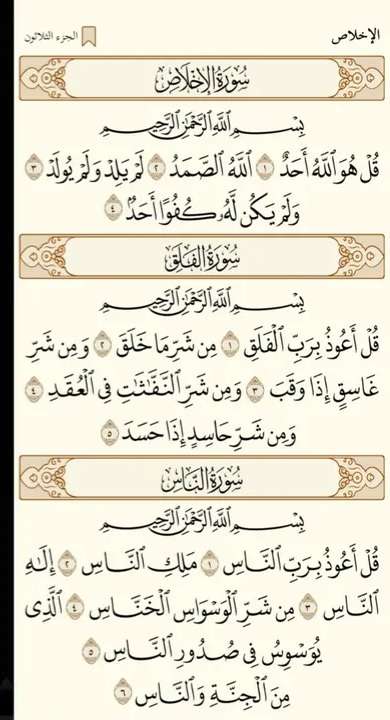 الإخلاص
الجزء الثلاثون
سُورَةُ الإِخْلَاصِ
بِسْمِ ٱللَّهِ ٱلرَّحْمَٰنِ ٱلرَّحِيمِ
قُلْ هُوَ ٱللَّهُ أَحَدٌ ١ ٱللَّهُ ٱلصَّمَدُ ٢ لَمْ يَلِدْ وَلَمْ يُولَدْ ٣
وَلَمْ يَكُن لَّهُۥ كُفُوًا أَحَدٌۢ ٤
سُورَةُ الفَلَقِ
بِسْمِ ٱللَّهِ ٱلرَّحْمَٰنِ ٱلرَّحِيمِ
قُلْ أَعُوذُ بِرَبِّ ٱلْفَلَقِ ١ مِن شَرِّ مَا خَلَقَ ٢ وَمِن شَرِّ
غَاسِقٍ إِذَا وَقَبَ ٣ وَمِن شَرِّ ٱلنَّفَّٰثَٰتِ فِى ٱلْعُقَدِ ٤
وَمِن شَرِّ حَاسِدٍ إِذَا حَسَدَ ٥
سُورَةُ النَّاسِ
بِسْمِ ٱللَّهِ ٱلرَّحْمَٰنِ ٱلرَّحِيمِ
قُلْ أَعُوذُ بِرَبِّ ٱلنَّاسِ ١ مَلِكِ ٱلنَّاسِ ٢ إِلَٰهِ
ٱلنَّاسِ ٣ مِن شَرِّ ٱلْوَسْوَاسِ ٱلْخَنَّاسِ ٤ ٱلَّذِى
يُوَسْوِسُ فِى صُدُورِ ٱلنَّاسِ ٥
مِنَ ٱلْجِنَّةِ وَٱلنَّاسِ ٦